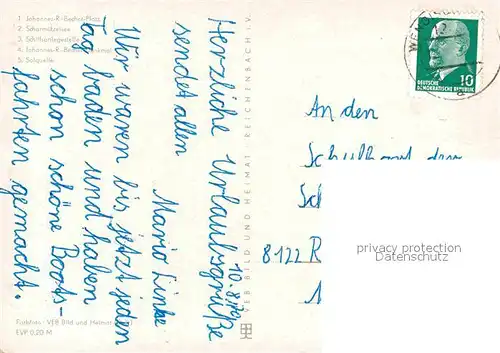 1 Johannes-R.-Becher-Platz
2 Scharmützelsee
3 Schiffsanlegestelle
4 Johannes-R.-Becher-Denkmal
5 Solquelle
10.8.70
Herzliche Urlaubsgrüße
sendet allen
Mario Linke
Wir waren bis jetzt jeden
Tag baden und haben
schon schöne Boots-
fahrten gemacht.
VEB BILD UND HEIMAT REICHENBACH i. V.
VEB Bild und Heimat
EVP 0,20 M
10
DEUTSCHE
DEMOKRATISCHE REPUBLIK
An den
8122 R
1
privacy protection
Datenschutz